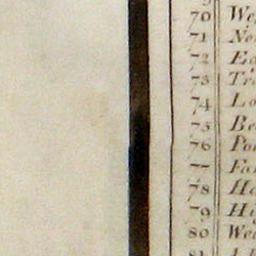 70 We
71 No
72 Ea
73 Tr
74 Lo
75 Be
76 Po
77 Fa
78 Ha
79 Hi
80 We
81